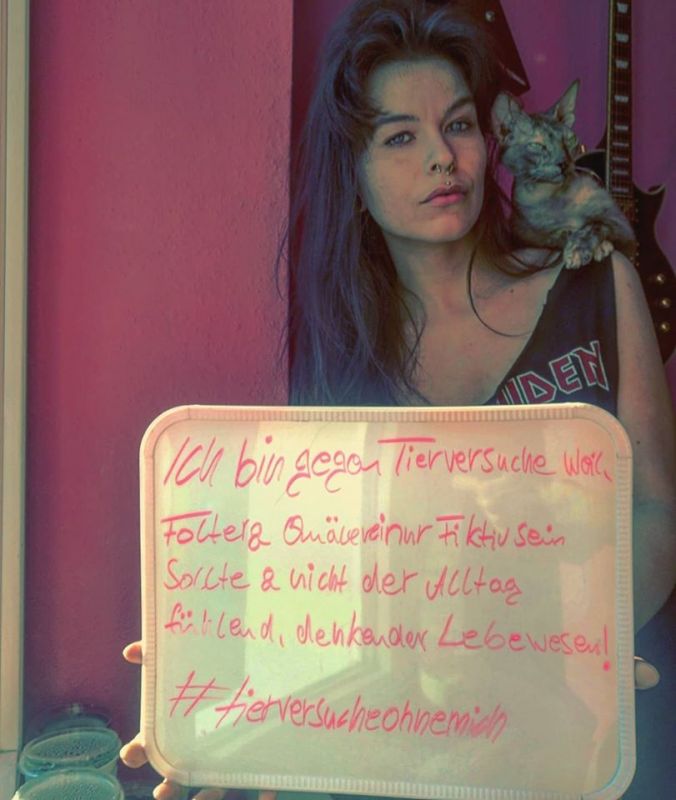 IDEN
Ich bin gegen Tierversuche weil
Folter & Quälerei nur Fiktiv sein
Sollte & nicht der Alltag
fühlend, denkender Lebewesen!
#tierversucheohnemich